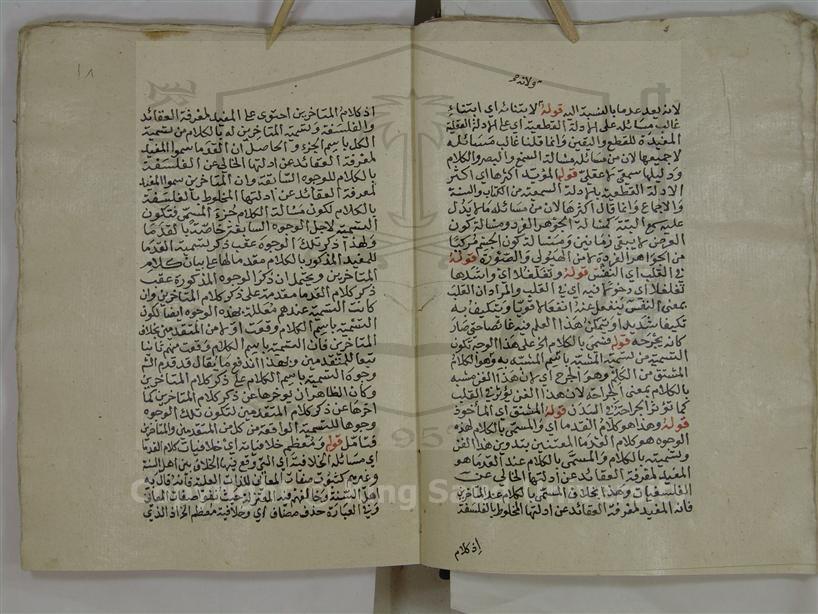 ولانه
لانه بعد عدما بالنسبة اليه قوله لابتنائه اي ابتناء
غالب مسائله على الادلة القطعية اي على الادلة العقلية
المفيدة للقطع واليقين وانما قلنا غالب مسائله
لا جميعها لان من مسائله مسالة السمع والبصر والكلام
ودليلها سمعي لا عقلي قوله المؤيد اكثرها اي اكثر
الادلة القطعية بالادلة السمعية من الكتاب والسنة
والاجماع وانما قال اكثرها لان من مسائله ما لا يدل
عليه السمع البتة كمسالة الجوهر الفرد ومسالة كون
العرض لا يبقى زمانين ومسالة كون الجسم مركبا
من الجواهر الفردة لا من الهيولى والصورة قوله
في القلب اي النفس قوله وتغلغلا اي واشدها
تغلغلا اي دخولا فيه اي في القلب والمراد ان القلب
بمعنى النفس ينفعل عنه انفعالا قويا ويتكيف به
تكيفا شديدا ويتمكن هذا العلم فيه غائصا حتى صار
كانه يجرحه قوله فسمي بالكلام الخ على هذا الوجه تكون
التسمية من تسمية المشبه باسم المشبه به وهو الكلام
المشتق من الكلم وهو الجرح اي لان هذا الفن مشبه
بالكلام بمعنى الجراحة لان هذا الفن يؤثر في القلب
كما تؤثر الجراحة في البدن قوله المشتق اي الماخوذ
قوله وهذا هو كلام القدما اي والمسمى بالكلام لهذه
الوجوه هو كلام القدما المعتنين بتدوين هذا الفن
وبتسميته بالكلام والمسمى بالكلام عند القدما هو
المفيد لمعرفة العقائد عن ادلتها الخالي عن
الفلسفيات وهذا بخلاف المسمى بالكلام عند المتاخرين
فانه المفيد لمعرفة العقائد عن ادلتها المخلوط بالفلسفة
اذ كلام
١٨
اذ كلام المتاخرين احتوى على المفيد لمعرفة العقائد
والفلسفة وتسمية المتاخرين له بالكلام من تسمية
الكل باسم الجزء والحاصل ان القدما سموا المفيد
لمعرفة العقائد عن ادلتها الخالي عن الفلسفة
بالكلام للوجوه السابقة وان المتاخرين سموا المفيد
لمعرفة العقائد عن ادلتها المخلوط بالفلسفة
بالكلام لكون مسالة الكلام جزء المسمى فتكون
التسمية لاجل الوجوه السابقة خاصة بالقدما
ولهذا ذكر تلك الوجوه عقب ذكر تسمية القدما
للمفيد المذكور بالكلام مقدما لها على بيان كلام
المتاخرين ويحتمل ان ذكر الوجوه المذكورة عقب
ذكر كلام القدما مقدمة على ذكر كلام المتاخرين وان
كانت التسمية عندهم معللة بهذه الوجوه ايضا لكون
التسمية باسم الكلام وقعت اولا من المتقدمين بخلاف
المتاخرين فان التسمية باسم الكلام وقعت منهم ثانيا
تبعا للمتقدمين وبهذا اندفع ما يقال قد قدم الش
وجوه التسمية باسم الكلام على ذكر كلام المتاخرين
وكان الظاهر ان يؤخرها عن ذكر كلام المتاخرين كما
اخرها عن ذكر كلام المتقدمين لتكون تلك الوجوه
وجوها للتسمية الواقعة من كل من المتقدمين والمتاخرين
فتامل قوله ومعظم خلافياته اي خلافيات كلام القدما
اي مسائله الخلافية اي التي وقع فيها الخلاف بين اهل السنة
وغيرهم كثبوت صفات المعاني للذات العلية فانه قال به
اهل السنة وخالفهم فيه المعتزلة
وفي العبارة حذف مضاف اي وخلافية معظم الخلاف الذي